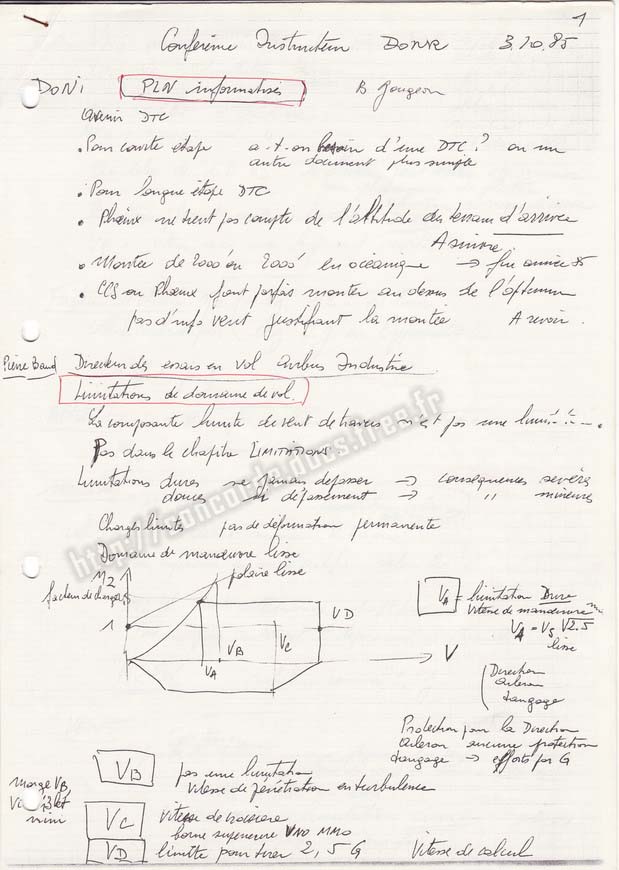 1
Conférence Instructeur DONR 3.10.85
DONI PLN informatisés B Gougeon
Avenir DTC
• Pour courte étape a-t-on besoin d'une DTC ? ou un
autre document plus simple
• Pour longue étape DTC
• Phoenix ne tient pas compte de l'altitude du terrain d'arrivée
A suivre
• Montée de 2000' en 2000' en océanique → fin année 85
• CCS ou Phoenix font parfois monter au dessus de l'optimum
pas d'info vent justifiant la montée A revoir.
Pierre Baud Directeur des essais en vol Airbus Industrie
Limitations de domaine de vol.
La composante limite de vent de travers n'est pas une
Pas dans le chapitre LIMITATIONS
Limitations dures ne jamais dépasser → conséquences sévères
douces si dépassement → " mineures
Charges limites pas de déformation permanente
Domaine de manœuvre lisse
http://concorde.docs.free.fr
nz
facteur de charge
polaire lisse
1
VD
VC
VB
VA
V
VA = limitation Dure
Vitesse de manœuvre
VA = VS √2.5
lisse
Direction
aileron
tangage
Protection pour la Direction
aileron aucune protection
tangage → efforts par G
VB pas une limitation
Vitesse de pénétration en turbulence
marge VB,
mini
VC Vitesse de croisière
borne supérieure VNO MMO
VD limite pour tirer 2,5 G Vitesse de calcul